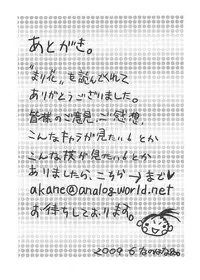 あとがき。
"まり花"を読んでくれて
ありがとうございました。
皆様のご意見、ご感想、
こんなキャラが見たい！とか
こんな技が見たい！とか
ありましたら、こちらまで♥
akane@analogworld.net
お待ちしております。
2009.6